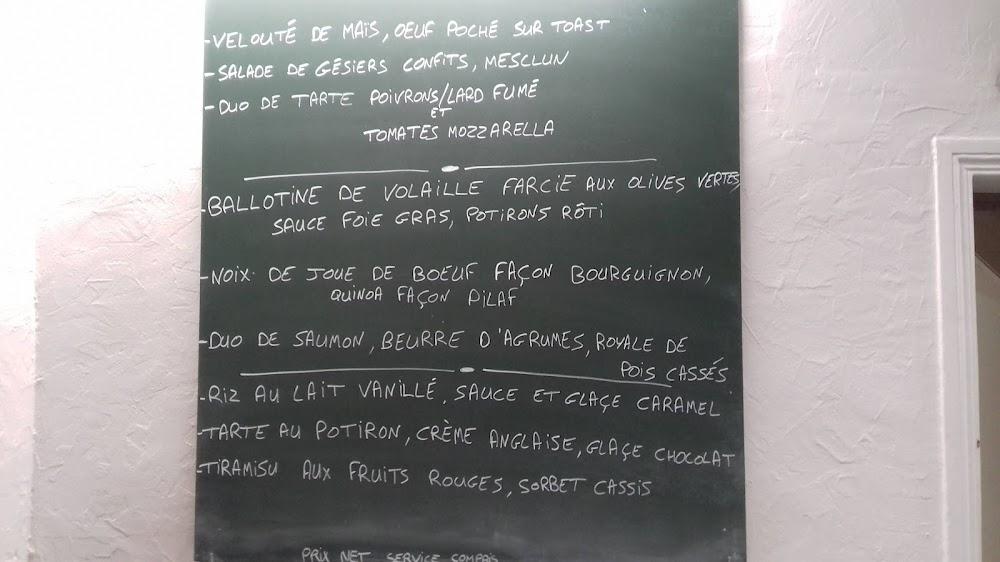 -VELOUTÉ DE MAÏS, OEUF POCHÉ SUR TOAST
-SALADE DE GÉSIERS CONFITS, MESCLUN
-DUO DE TARTE POIVRONS/LARD FUMÉ
ET
TOMATES MOZZARELLA
-BALLOTINE DE VOLAILLE FARCIE AUX OLIVES VERTES,
SAUCE FOIE GRAS, POTIRONS RÔTI
-NOIX DE JOUE DE BOEUF FAÇON BOURGUIGNON,
QUINOA FAÇON PILAF
-DUO DE SAUMON, BEURRE D'AGRUMES, ROYALE DE
POIS CASSÉS
-RIZ AU LAIT VANILLÉ, SAUCE ET GLAÇE CARAMEL
-TARTE AU POTIRON, CRÈME ANGLAISE, GLAÇE CHOCOLAT
-TIRAMISU AUX FRUITS ROUGES, SORBET CASSIS
PRIX NET SERVICE COMPRIS